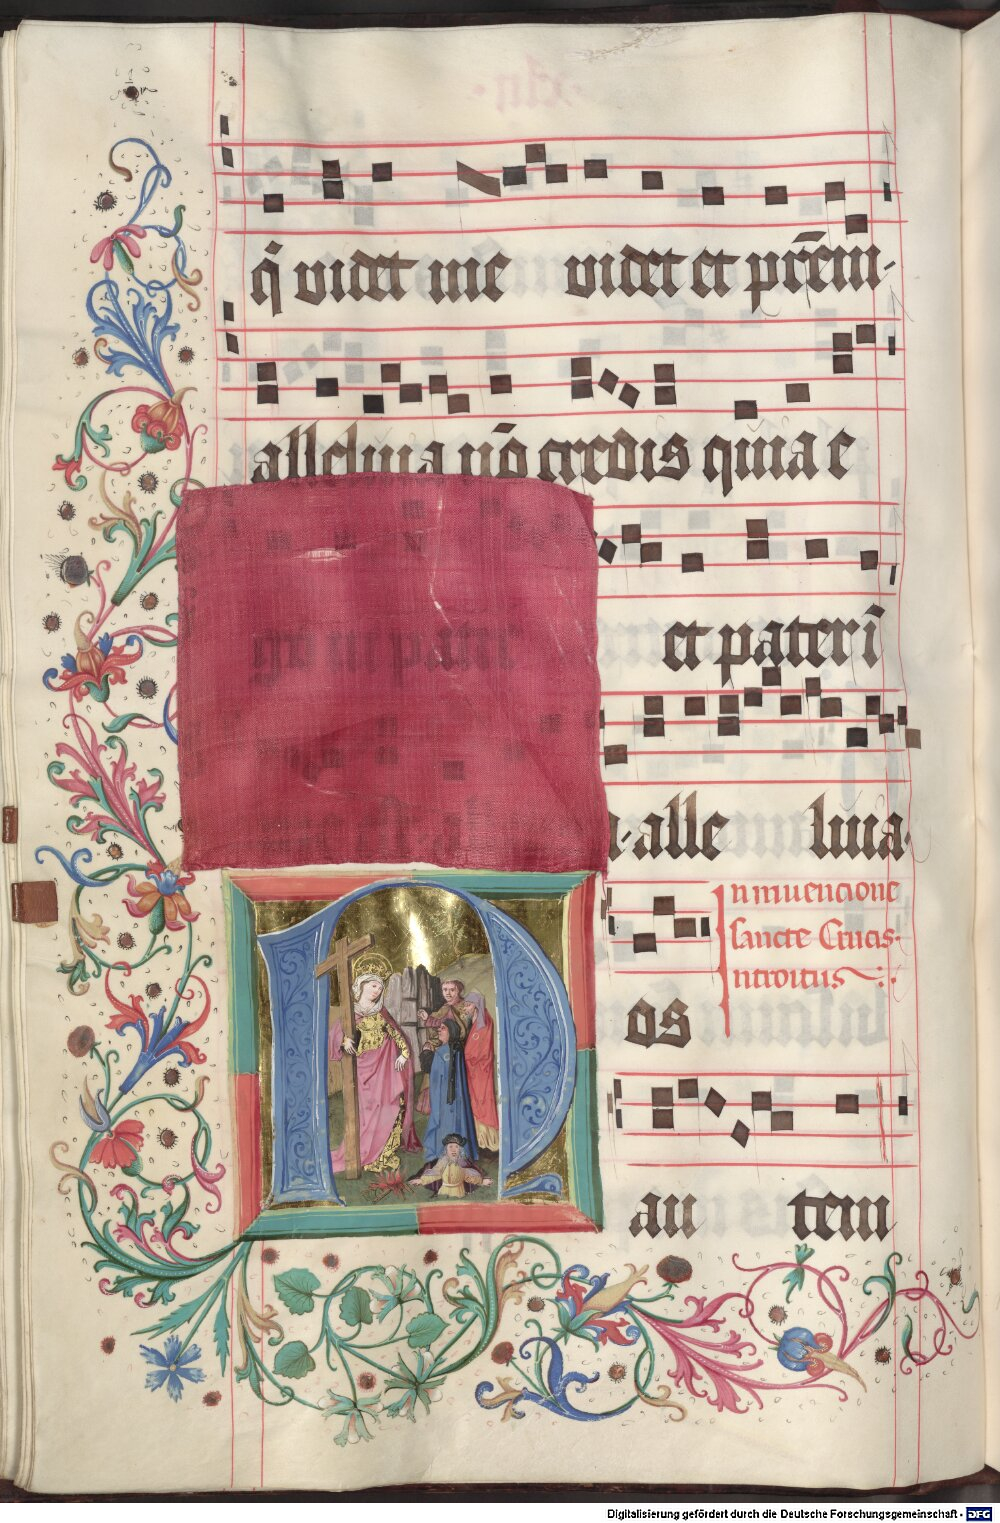 q̄ videt me videt et pr̄em·
alleluia nō credis quia e
go in patri et pater ī
alle luia·
In inuencione
sancte Crucis·
introitus
Nos
au tem
Digitalisierung gefördert durch die Deutsche Forschungsgemeinschaft - DFG